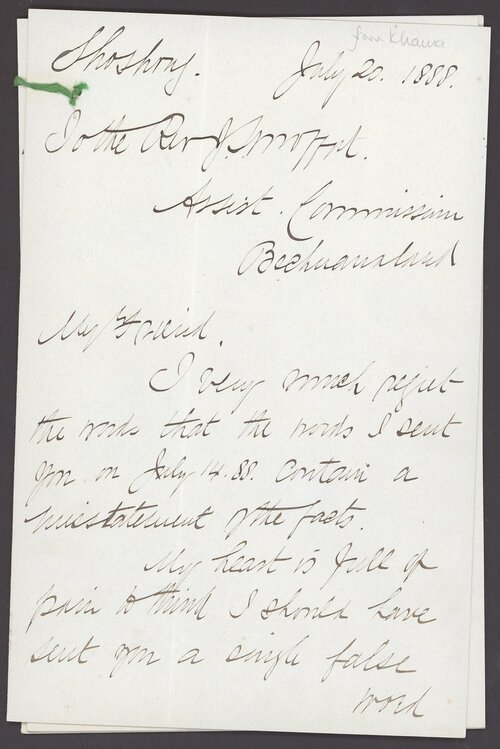 from Khama
Shoshong. July 20. 1888.
To the Rev J. S. Moffat.
Assist. Commission
Bechuanaland
My Friend.
I very much regret
the words that the words I sent
you on July 14. 88. contain a
misstatement of the facts.
My heart is full of
pain to think I should have
sent you a single false
word